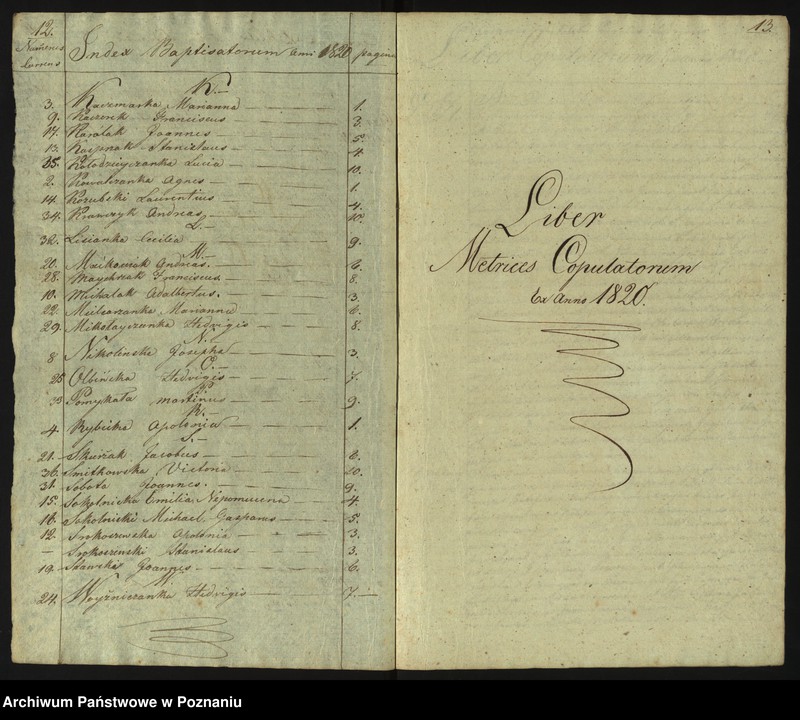 12.
Numerus Index Baptisatorum Anni 1820 pagina
K.
3. Kaczmarka Marianna 1.
9. Franciscus 3.
17. Karolak Joannes 5.
13. Kasprzak Stanislaus 4.
35. Kołodzieyczanka Lucia 10.
2. Kowalczanka Agnes 1.
14. Kozubski Laurentius 4.
34. Krawczyk Andreas 10.
L.
32. Lisianka Cecilia 9.
M.
20. Andreas. 6.
28. Franciscus 8.
10. Michalak Adalbertus. 3.
22. Marianna 6.
29. Mikołayczanka Hedvigis 8.
N.
8 Nikolinska Josepha 3.
O.
25 Olbińska Hedvigis 7.
P.
33 Pomykała Martinus 9.
R.
4. Rybicka Apolonia 1.
S.
21. Jacobus 6.
36. Smitkowska Victoria 10.
31. Sobota Joannes. 9.
15. Sokolnicka Emilia Nepomucena 4.
16. Sokolnicki Michael Gasparus 5.
12. Srokoszewska Apolonia 3.
— Srokoszewski Stanislaus 3.
19. Joannes 6.
W.
24. Hedvigis 7.
13.
Liber
Metrices Copulatorum
Ex Anno 1820.
Archiwum Państwowe w Poznaniu